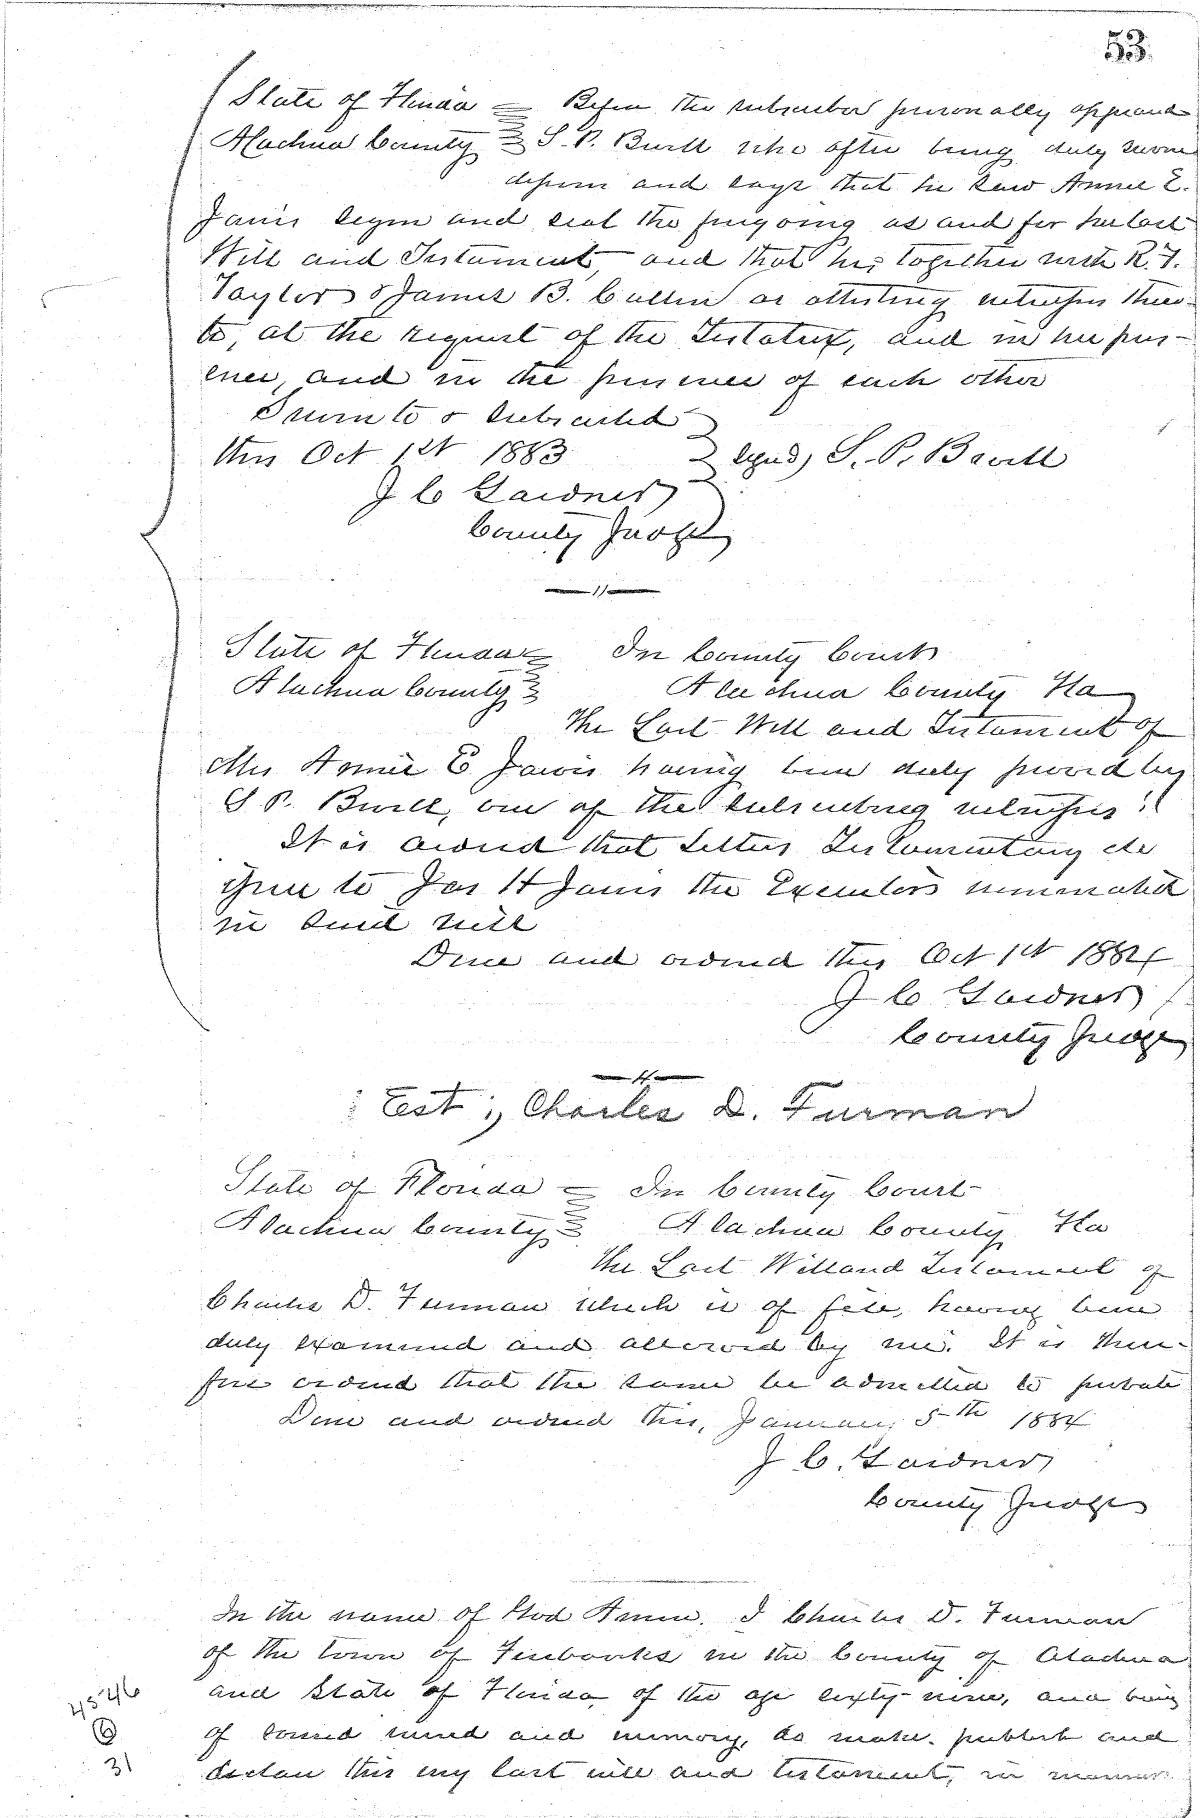 53.
State of Florida Before the subscriber personally appeared
Alachua County S. P. Burll who after being duly sworn
deposes and says that he saw Annie E.
Jarvis sign and seal the foregoing as and for her last
Will and Testament, and that he, together with R. F.
Taylor & James B. Cullen as attesting witnesses there-
to, at the request of the Testatrix, and in her pres-
ence, and in the presence of each other
Sworn to & subscribed
this Oct 1st 1883 signed, S. P. Burll
J C Gardner
County Judge
State of Florida In County Court
Alachua County Alachua County Fla
The Last Will and Testament of
Mrs Annie E Jarvis having been duly proved by
S P. Burll, one of the subscribing witnesses
It is ordered that Letters Testamentary de
given to Jas H Jarvis the Executors nominated
in said will
Done and ordered this Oct 1st 1884
J C Gardner
County Judge
Est: Charles D. Furman
State of Florida In County Court
Alachua County Alachua County Fla
The Last Will and Testament of
Charles D. Furman which is of file, having been
duly examined and allowed by me. It is there-
fore ordered that the same be admitted to probate
Done and ordered this, January 5th 1884
J C. Gardner
County Judge
In the name of God Amen. I Charles D. Furman
of the town of Fairbanks in the County of Alachua
and State of Florida, of the age sixty-nine, and being
of sound mind and memory, do make, publish and
declare this my last will and testament, in manner
4546
6
31